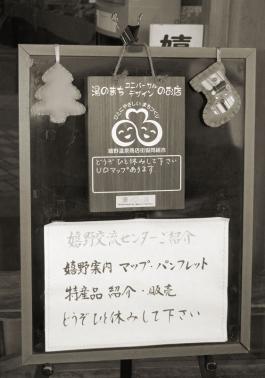 嬉
湯のまち ユニバーサルデザインのお店
ひとにやさしい まちづくり
嬉野温泉商店街協同組合
どうぞひと休みして下さい
UDマップあります。
嬉野交流センターご紹介
嬉野案内 マップ・パンフレット
特産品 紹介・販売
どうぞひと休みして下さい